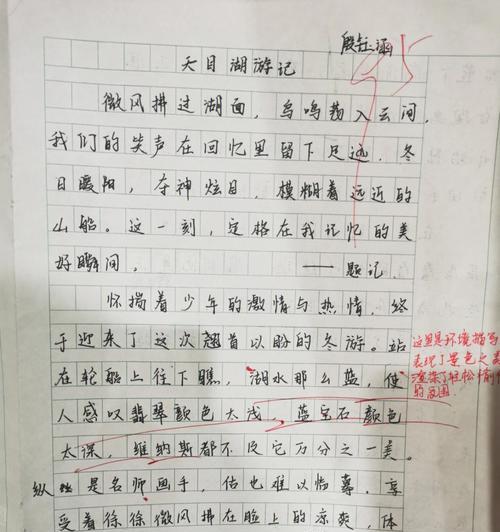 殷钰涵
95
天目湖游记
微风拂过湖面，鸟鸣荡入云间，
我们的笑声在回忆里留下足迹，冬
日暖阳，夺神炫目，模糊着远近的
山船。这一刻，定格在我记忆的美
好瞬间，
——题记
怀揣着少年的激情与热情，终
于迎来了这次翘首以盼的冬游。站
在轮船上往下瞧，湖水那么蓝，使
人感叹翡翠颜色太浅，蓝宝石颜色
太深，维纳斯都不及它万分之一美。
纵 是名师画手，估也难以临摹，享
受着徐徐微风拂在脸上的凉爽，体
这里是环境描写
表现了景色之美
渲染了轻松愉
的氛围